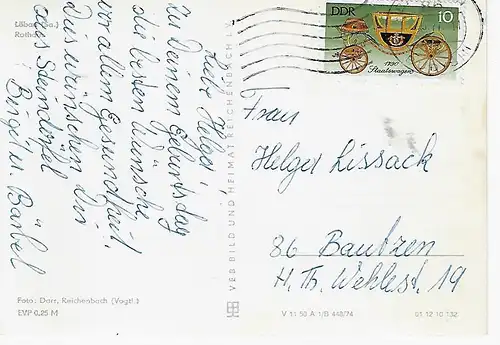 Löbau (Sa.)
Rathaus
Liebe Helga,
zu Deinem Geburtstag
die besten Wünsche,
vor allem Gesundheit.
Dies wünschen Dir
aus
Birgit u. Bärbel
DDR
10
1790
Staatswagen
Frau
Helga Lissack
86 Bautzen
H. Th. 19
VEB BILD UND HEIMAT REICHENBACH
Foto: Darr, Reichenbach (Vogtl.)
EVP 0,25 M
V 11 50 A 1/B 448/74
01 12 10 132